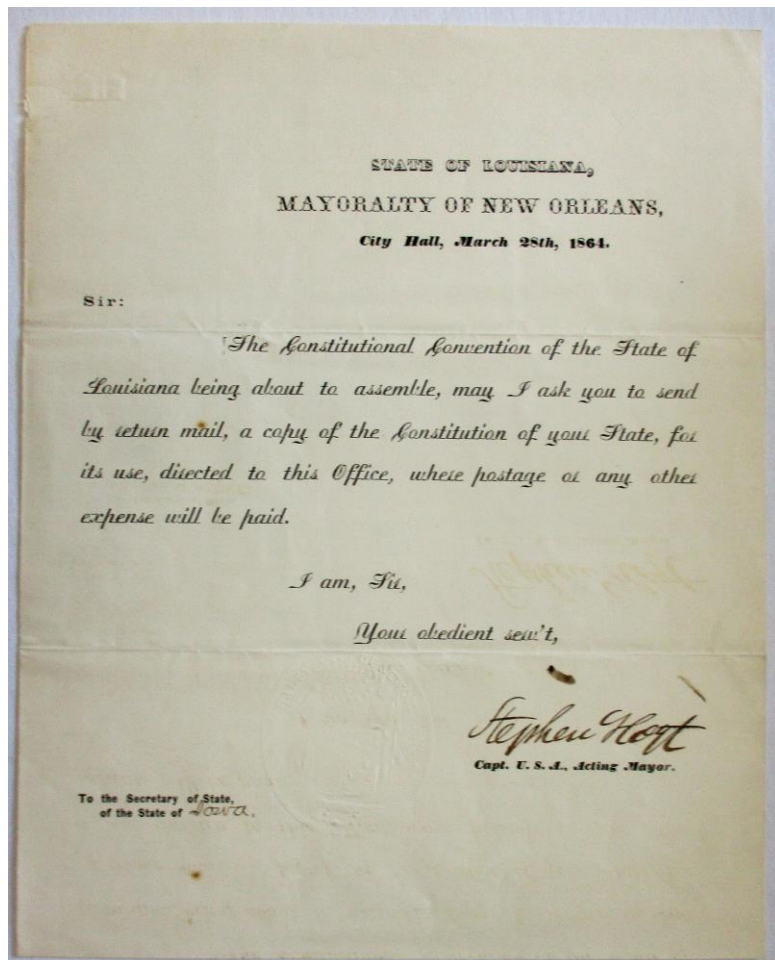 STATE OF LOUISIANA,
MAYORALTY OF NEW ORLEANS,
City Hall, March 28th, 1864.
Sir:
The Constitutional Convention of the State of
Louisiana being about to assemble, may I ask you to send
by return mail, a copy of the Constitution of your State, for
its use, directed to this Office, where postage or any other
expense will be paid.
I am, Sir,
Your obedient serv't,
Stephen Hoyt
Capt. U. S. A., Acting Mayor.
To the Secretary of State,
of the State of Iowa.